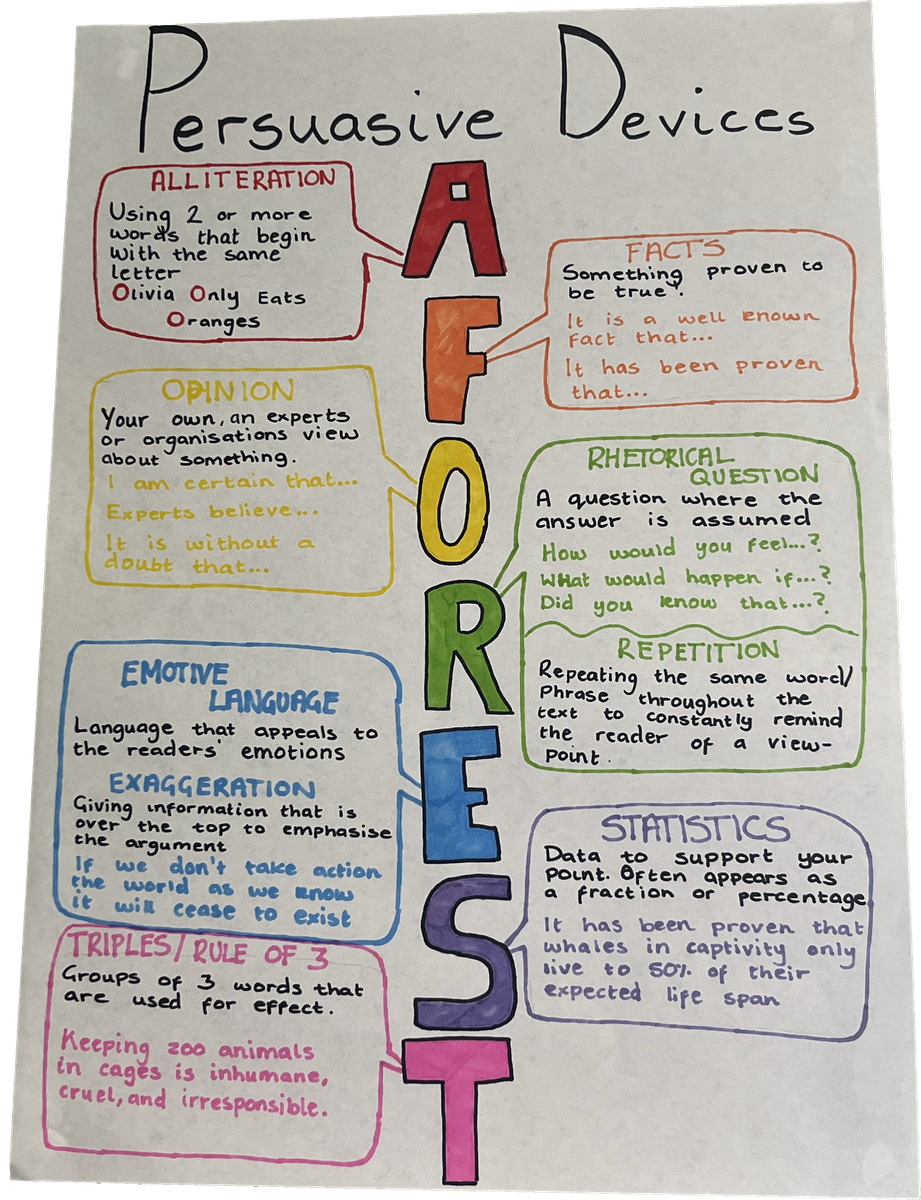 Persuasive Devices
A
ALLITERATION
Using 2 or more
words that begin
with the same
letter
Olivia Only Eats
Oranges
F
FACTS
Something proven to
be true.
It is a well known
fact that...
It has been proven
that...
O
OPINION
Your own, an experts
or organisations view
about something.
I am certain that...
Experts believe...
It is without a
doubt that...
R
RHETORICAL
QUESTION
A question where the
answer is assumed
How would you feel...?
What would happen if...?
Did you know that...?
REPETITION
Repeating the same word/
Phrase throughout the
text to constantly remind
the reader of a view-
point.
E
EMOTIVE
LANGUAGE
Language that appeals to
the readers' emotions
EXAGGERATION
Giving information that is
over the top to emphasise
the argument
If we don't take action
the world as we know
it will cease to exist
S
STATISTICS
Data to support your
point. Often appears as
a fraction or percentage
It has been proven that
whales in captivity only
live to 50% of their
expected life span
T
TRIPLES/RULE OF 3
Groups of 3 words that
are used for effect.
Keeping zoo animals
in cages is inhumane,
cruel, and irresponsible.